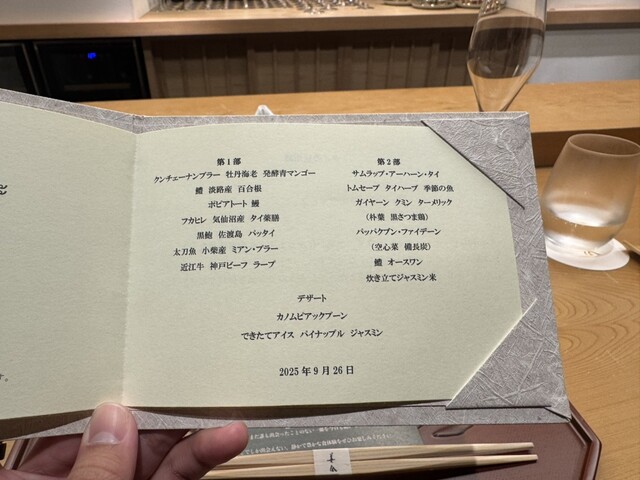 第1部
クンチェーナンプラー 牡丹海老 発酵青マンゴー
鱧 淡路産 百合根
ポピアトート 鰻
フカヒレ 気仙沼産 タイ薬膳
黒鮑 佐渡島 パッタイ
太刀魚 小柴産 ミアン・プラー
近江牛 神戸ビーフ ラープ
第2部
サムラップ・アーハーン・タイ
トムセープ タイハーブ 季節の魚
ガイヤーン クミン ターメリック
（朴葉 黒さつま鶏）
パッパクブン・ファイデーン
（空心菜 備長炭）
鱧 オースワン
炊き立てジャスミン米
デザート
カノムピアックプーン
できたてアイス パイナップル ジャスミン
2025年9月26日
す。